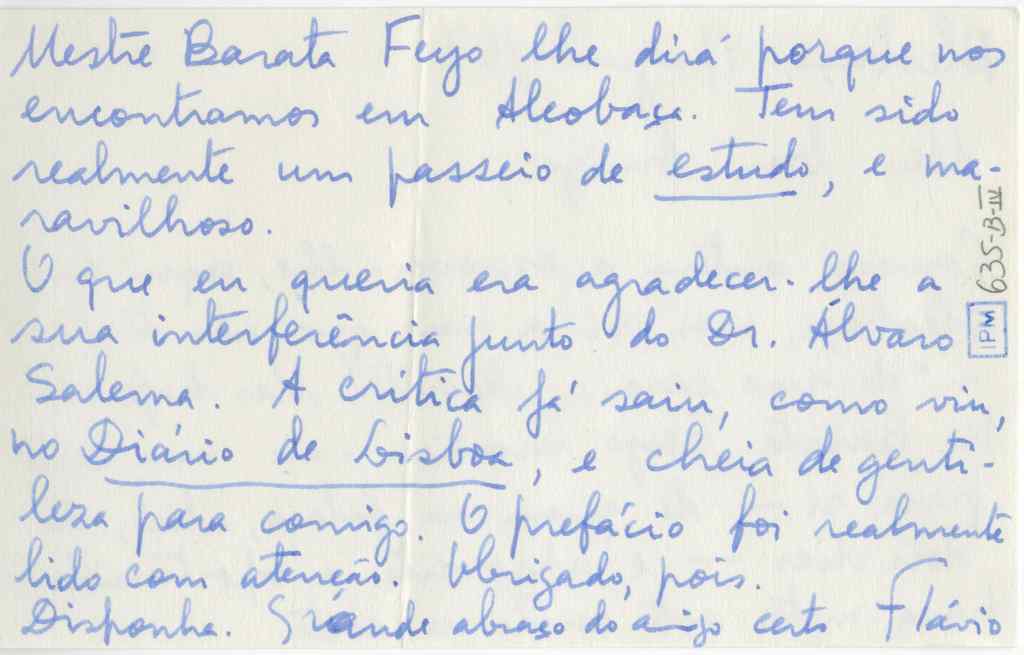 Mestre Barata Feyo lhe dirá porque nos
encontramos em Alcobaça. Tem sido
realmente um passeio de estudo, e ma-
ravilhoso.
O que eu queria era agradecer-lhe a
sua interferência junto do Dr. Álvaro
Salema. A crítica já saiu, como viu,
no Diário de Lisboa, e cheia de genti-
leza para comigo. O prefácio foi realmente
lido com atenção. Obrigado, pois.
Disponha. Grande abraço do amigo certo Flávio
635-B-IV
IPM